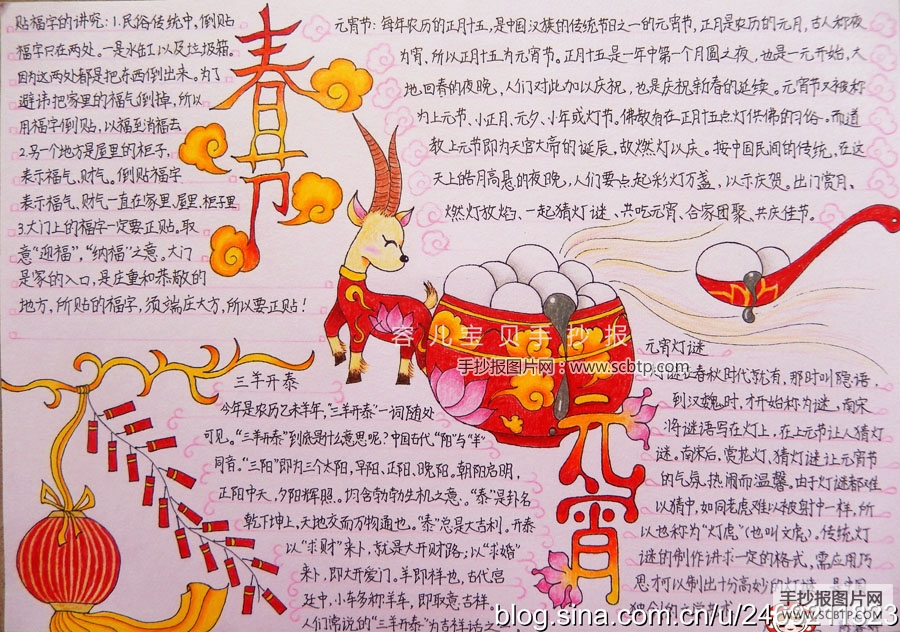 贴福字的讲究：1.民俗传统中，倒贴
福字只在两处。一是水缸以及垃圾箱。
因为这两处都是把东西倒出来。为了
避讳把家里的福气倒掉，所以
用福字倒贴，以福到消福去
2.另个地方是屋里的柜子，
表示福气、财气。倒贴福字
表示福气、财气一直在家里、屋里、柜子里
3.大门上的福字一定要正贴。取
意“迎福”，“纳福”之意。大门
是家的入口，是庄重和恭敬的
地方，所贴的福字，须端庄大方，所以要正贴！
春节
元宵节：每年农历的正月十五，是中国汉族的传统节日之一的元宵节，正月是农历的元月，古人称夜
为宵，所以正月十五为元宵节。正月十五是一年中第一个月圆之夜，也是一元开始，大
地回春的夜晚，人们对此加以庆祝，也是庆祝新春的延续。元宵节又被称
为上元节、小正月、元夕、小年或灯节。佛教有在正月十五点灯供佛的习俗。而道
教上元节即为天官大帝的诞辰，故燃灯以庆。按中国民间的传统，在这
天上皓月高悬的夜晚，人们要点起彩灯万盏，以示庆贺。出门赏月、
燃灯放焰、一起猜灯谜、共吃元宵、合家团聚、共庆佳节。
容儿宝贝手抄报
手抄报图片网：www.scbtp.com
三羊开泰
今年是农历乙未羊年，“三羊开泰”一词随处
可见。“三羊开泰”到底是什么意思呢？中国古代，“阳”与“羊”
同音。“三阳”即为三个太阳，早阳、正阳、晚阳，朝阳启明，
正阳中天，夕阳辉照。均含勃勃生机之意。“泰”是卦名
乾下坤上，天地交而万物通也。“泰”总是大吉利。开泰
以“求财”来卜，就是大开财路；以“求婚”
来卜，即大开爱门。羊即祥也，古代宫
廷中，小车多称羊车，即取意吉祥。
人们常说的“三羊开泰”为吉祥语之一。
元宵
元宵灯谜
灯谜在春秋时代就有，那时叫隐语，
到汉魏时，才开始称为谜，南宋
将谜语写在灯上，在上元节让人猜灯
谜。南宋后，赏花灯，猜灯谜让元宵节
的气氛，热闹而温馨。由于灯谜都难
以猜中，如同老虎难以被射中一样，所
以也称为“灯虎”（也叫文虎）。传统灯
谜的制作讲求一定的格式，需应用巧
思才可以制出十分高妙的灯谜，是中国
独创的文学
手抄报图片网
WWW.SCBTP.COM
blog.sina.com.cn/u/24